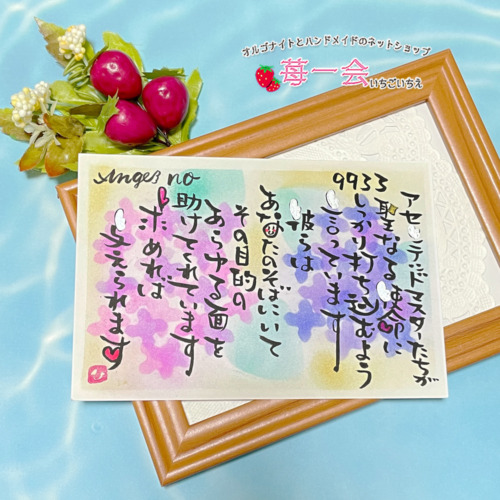 オルゴナイトとハンドメイドのネットショップ
苺一会
いちごいちえ
Angel no
9933
アセンデッドマスターたちが
聖なる使命に
しっかり打ち込むよう
言っています
彼らは
あなたのそばにいて
その目的の
あらゆる面を
助けてくれています
求めれば
与えられます